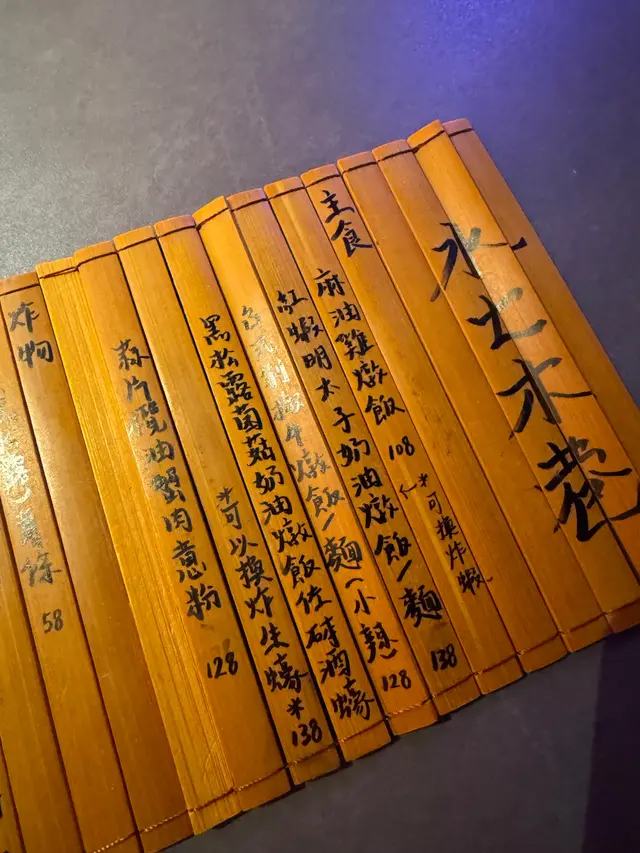 水土木巷
主食
麻油雞燉飯 108 (*可換炸蝦)
紅蝦明太子奶油燉飯/麵 138
椒牛燉飯/麵(小辣) 128
黑松露菌菇奶油燉飯佐碎酒蠔
*可以換炸生蠔* 138
蒜片欖油蟹肉意粉 128
炸物
58